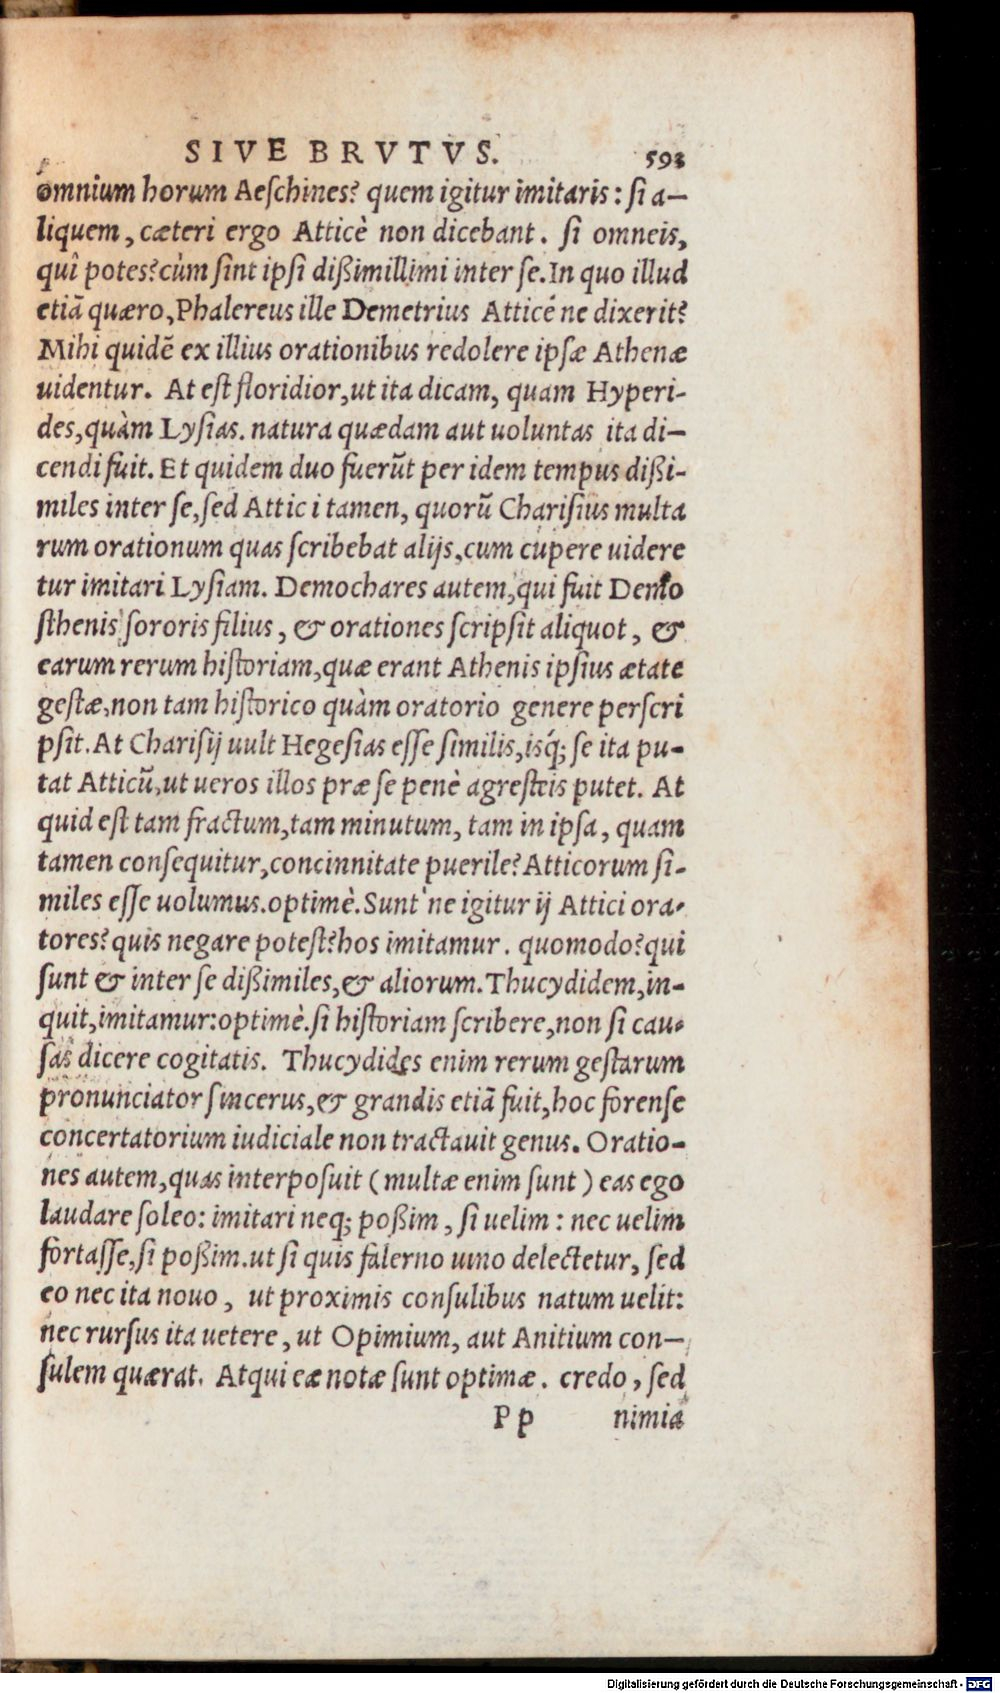 SIVE BRVTVS. 593
omnium horum Aeſchines? quem igitur imitaris: ſi a-
liquem, cæteri ergo Atticè non dicebant. ſi omneis,
quî potes? cùm ſint ipſi dißimillimi inter ſe. In quo illud
etiā quæro, Phalereus ille Demetrius Atticé ne dixerit?
Mihi quidē ex illius orationibus redolere ipſæ Athenæ
uidentur. At eſt floridior, ut ita dicam, quam Hyperi-
des, quàm Lyſias. natura quædam aut uoluntas ita di-
cendi fuit. Et quidem duo fuerūt per idem tempus dißi-
miles inter ſe, ſed Attic i tamen, quorū Chariſius multa
rum orationum quas ſcribebat alijs, cum cupere uidere
tur imitari Lyſiam. Demochares autem, qui fuit Demo
ſthenis ſororis filius, & orationes ſcripſit aliquot, &
earum rerum hiſtoriam, quæ erant Athenis ipſius ætate
geſtæ, non tam hiſtorico quàm oratorio genere perſcri
pſit. At Chariſij uult Hegeſias eſſe ſimilis, isq́; ſe ita pu-
tat Atticū, ut ueros illos præ ſe penè agreſteis putet. At
quid eſt tam fractum, tam minutum, tam in ipſa, quam
tamen conſequitur, concinnitate puerile? Atticorum ſi-
miles eſſe uolumus. optimè. Sunt'ne igitur ij Attici ora-
tores? quis negare poteſt? hos imitamur. quomodo? qui
ſunt & inter ſe dißimiles, & aliorum. Thucydidem, in-
quit, imitamur: optimè. ſi hiſtoriam ſcribere, non ſi cau-
ſas dicere cogitatis. Thucydides enim rerum geſtarum
pronunciator ſincerus, & grandis etiā fuit, hoc forenſe
concertatorium iudiciale non tractauit genus. Oratio-
nes autem, quas interpoſuit (multæ enim ſunt) eas ego
laudare ſoleo: imitari neq; poßim, ſi uelim: nec uelim
fortaſſe, ſi poßim. ut ſi quis falerno uino delectetur, ſed
eo nec ita nouo, ut proximis conſulibus natum uelit:
nec rurſus ita uetere, ut Opimium, aut Anitium con-
ſulem quærat. Atqui eæ notæ ſunt optimæ. credo, ſed
Pp nimia
Digitalisierung gefördert durch die Deutsche Forschungsgemeinschaft - DFG